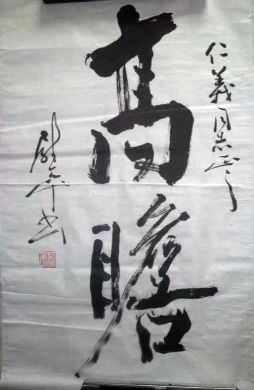 仁義同志正之
高瞻